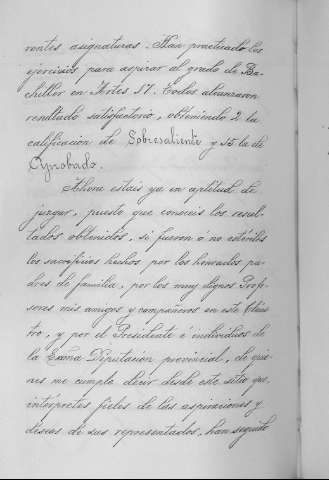 rentes asignaturas. Han practicado los
ejercicios para aspirar al grado de Ba-
chiller en Artes 17. Todos alcanzaron
resultado satisfactorio, obteniendo 2 la
calificación de Sobresaliente y 15 la de
Aprobado.
Ahora estais ya en aptitud de
juzgar, puesto que conoceis los resul-
tados obtenidos, si fueron ó no estériles
los sacrificios hechos por los honrados pa-
dres de familia, por los muy dignos Profe-
sores mis amigos y compañeros en este Claus-
tro, y por el Presidente é individuos de
la Exma Diputación provincial, de quie-
nes me cumple decir desde este sitio que,
intérpretes fieles de las aspiraciones y
deseos de sus representados, han seguido